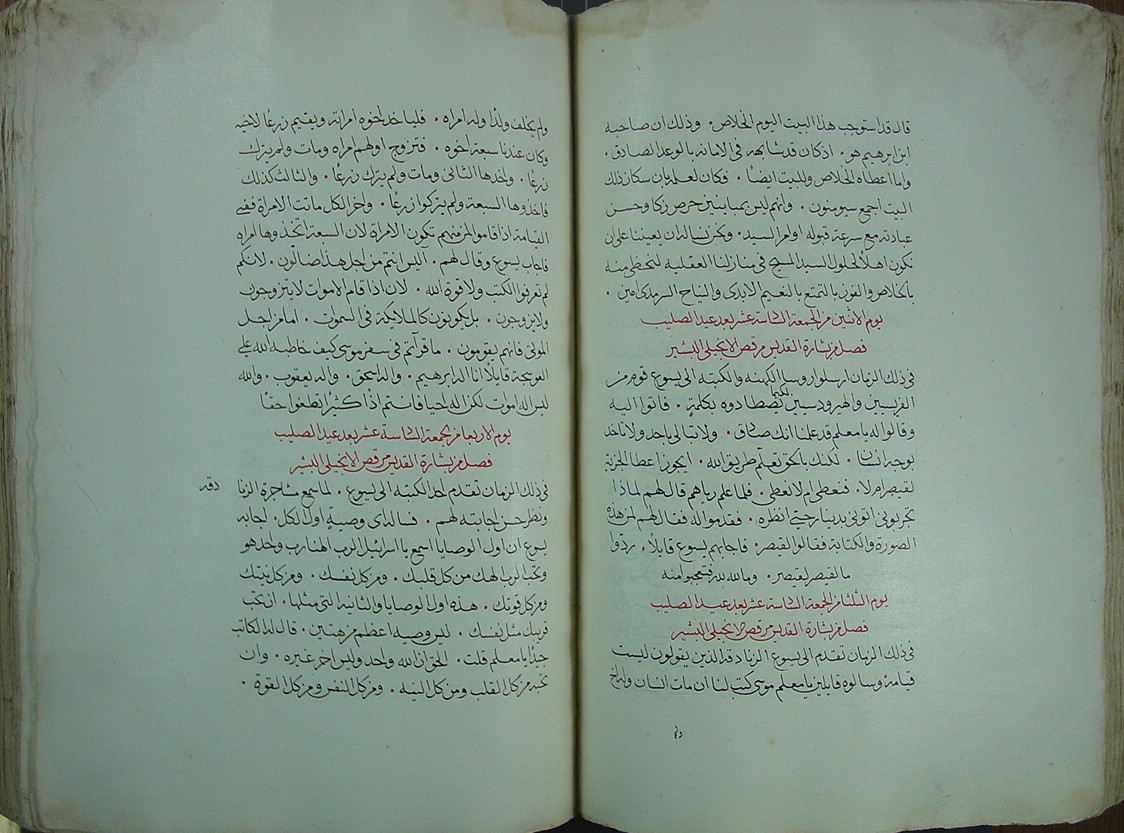 قال قد استوجب هذا البيت اليوم الخلاص • وذلك ان صاحبه
ابن ابرهيم هو • اذ كان قد شابهه في الامانة بالوعد الصادق •
وانما اعطاه الخلاص وللبيت ايضا • فكان لعلمه بان سكان ذلك
البيت اجمع سيومنون • وانهم ليس بمباينين حرص زكا وحسن
عبادته مع سرعة قبوله اوامر السيد • ونحن نساله ان يعيننا على ان
نكون اهلا لحلول السيد المسيح في منازلنا العقليه لنحظى منه
بالخلاص والفوز بالتمتع بالنعيم الابدى والنياح السرمدى امين •
يوم الاثنين من الجمعة السادسة عشر بعد عيد الصليب
فصل من بشارة القديس مرقص الانجيلي البشير
في ذلك الزمان ارسلوا روسا الكهنه والكتبه الى يسوع قوم من
الفريسيين والهيرودسيين لكيما يصطادوه بكلمة • فاتوا اليه
وقالوا له يا معلم قد علمنا انك صادق • ولا تبالي باحد ولا تاخد
بوجه انسان • لكنك بالحق تعلم طريق الله • ايجوز اعطا الجزية
لقيصر ام لا • فنعطي ام لا نعطي • فلما علم رياهم قال لهم لماذا
تجربوني اتوني بدينار حتى انظره • فقدموا له فقال لهم لمن هذه
الصورة والكتابة فقالوا لقيصر • فاجابهم يسوع قايلا • ردوا
ما لقيصر لقيصر • وما لله لله فتعجبوا منه
يوم الثلثا من الجمعة السادسة عشر بعد عيد الصليب
فصل من بشارة القديس مرقص الانجيلي البشير
في ذلك الزمان تقدم الى يسوع الزنادقه الذين يقولون ليست
قيامة وسالوه قايلين يا معلم موسى كتب لنا ان مات انسان وله اخ
ولم يخلف ولدا وله امراه • فلياخد اخوه امراته ويقيم زرعا لاخيه
وكان عندنا سبعة اخوه • فتزوج اولهم امراه ومات ولم يترك
زرعا • واخدها الثاني ومات ولم يترك زرعا • والثالث كذلك
فاخدوها السبعة ولم يتركوا زرعا • واخر الكل ماتت الامراة ففي
القيامة اذا قاموا لمن منهم تكون الامراة لان السبعة اتخذوها امراه
فاجاب يسوع وقال لهم • اليس انتم من اجل هذا ضالون • لانكم
لم تعرفوا الكتب ولا قوة الله • لان اذا قام الاموات لا يتزوجون
ولا يزوجون • بل يكونون كالملايكة في السموات • اما من اجل
الموتى فانهم يقومون • ما قراتم في سفر موسى كيف خاطبه الله على
العوسجة قايلا انا اله ابرهيم • واله اسحق • واله يعقوب • والله
ليس اله اموات لكن اله احيا فانتم اذا كثيرا تطغوا حقا
يوم الاربعا من الجمعة السادسة عشر بعد عيد الصليب
فصل من بشارة القديس مرقص الانجيلي البشير
في ذلك الزمان تقدم احد الكتبه الى يسوع • لما سمع مشاجرة الزنا
دقه
ونظر حسن اجابته لهم • فساله اى وصية اول الكل • اجابه
يسوع ان اول الوصايا اسمع يا اسرائيل الرب الهنا رب واحد هو
وتحب الرب الهك من كل قلبك • ومن كل نفسك • ومن كل نيتك
ومن كل قوتك • هذه اول الوصايا والثانيه التي مثلها • ان تحب
قريبك مثل نفسك • ليس وصيه اعظم من هتين • قال له الكاتب
جيدا يا معلم قلت • الحق ان الله واحد وليس اخر غيره • وان
تحبه من كل القلب ومن كل النيه • ومن كل النفس ومن كل القوة •